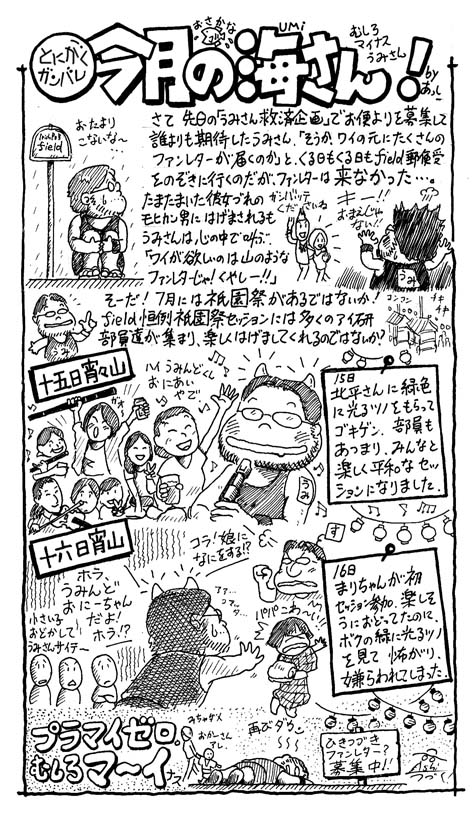 とにかく
ガンバレ
今月の海さん!
おさかな
UMi
むしろ
マイナス
うみさん
by
あっこ
field
おたより
こないな~
さて 先日の「うみさん救済企画」でお便りを募集して
誰よりも期待したうみさん、「そうか、ワイの元にたくさんの
ファンレターが届くのか」と、くる日もくる日もfield郵便受
をのぞきに行くのだが、ファンレターは来なかった…。
たまたまいた彼女づれの
モヒカン男にはげまされるも
うみさんは、心の中で叫ぶ…
「ワイが欲しいのは山のような
ファンレターじゃ!くやしー!!」
ガンバッテ
くださいね
キー!!
おまえじゃ
ない!!
うみ
そーだ!7月には祇園祭があるではないか!
field恒例祇園祭セッションには多くのアイ研
部員達が集まり、楽しくはげましてくれるのではないか?
コンコン
チキ
チキ
十五日宵々山
うみんどくん
おにあい
やで
うみ
15日
北平さんに緑色
に光るツノをもらって
ゴキゲン。部員も
あつまり、みんなと
楽しく平和なセッ
ションになりました。
十六日宵山
コラ!娘に
なにをする!?
す
ホラ、
うみんど
おにーちゃん
だよ!
ホラ!?
小さい子
おどかして
うみさんサイテー
パパこわーい
16日
まりちゃんが初
セッション参加。楽しそ
うにおどってたのに、
ボクの緑に光るツノ
を見て怖がり、
嫌らわれてしまった。
プラマイゼロ、
むしろマ~イナス
みちゃダメ
おかーさん
アレ
再びダウン
ひきつづき
ファンレター?
募集中!!
つづく!